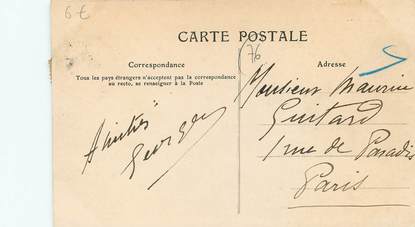 6 €
CARTE POSTALE
76
Correspondance
Tous les pays étrangers n'acceptent pas la correspondance
au recto, se renseigner à la Poste
Amitiés
Georges
Adresse
Monsieur Maurice
Guitard
1 rue de Paradis
Paris